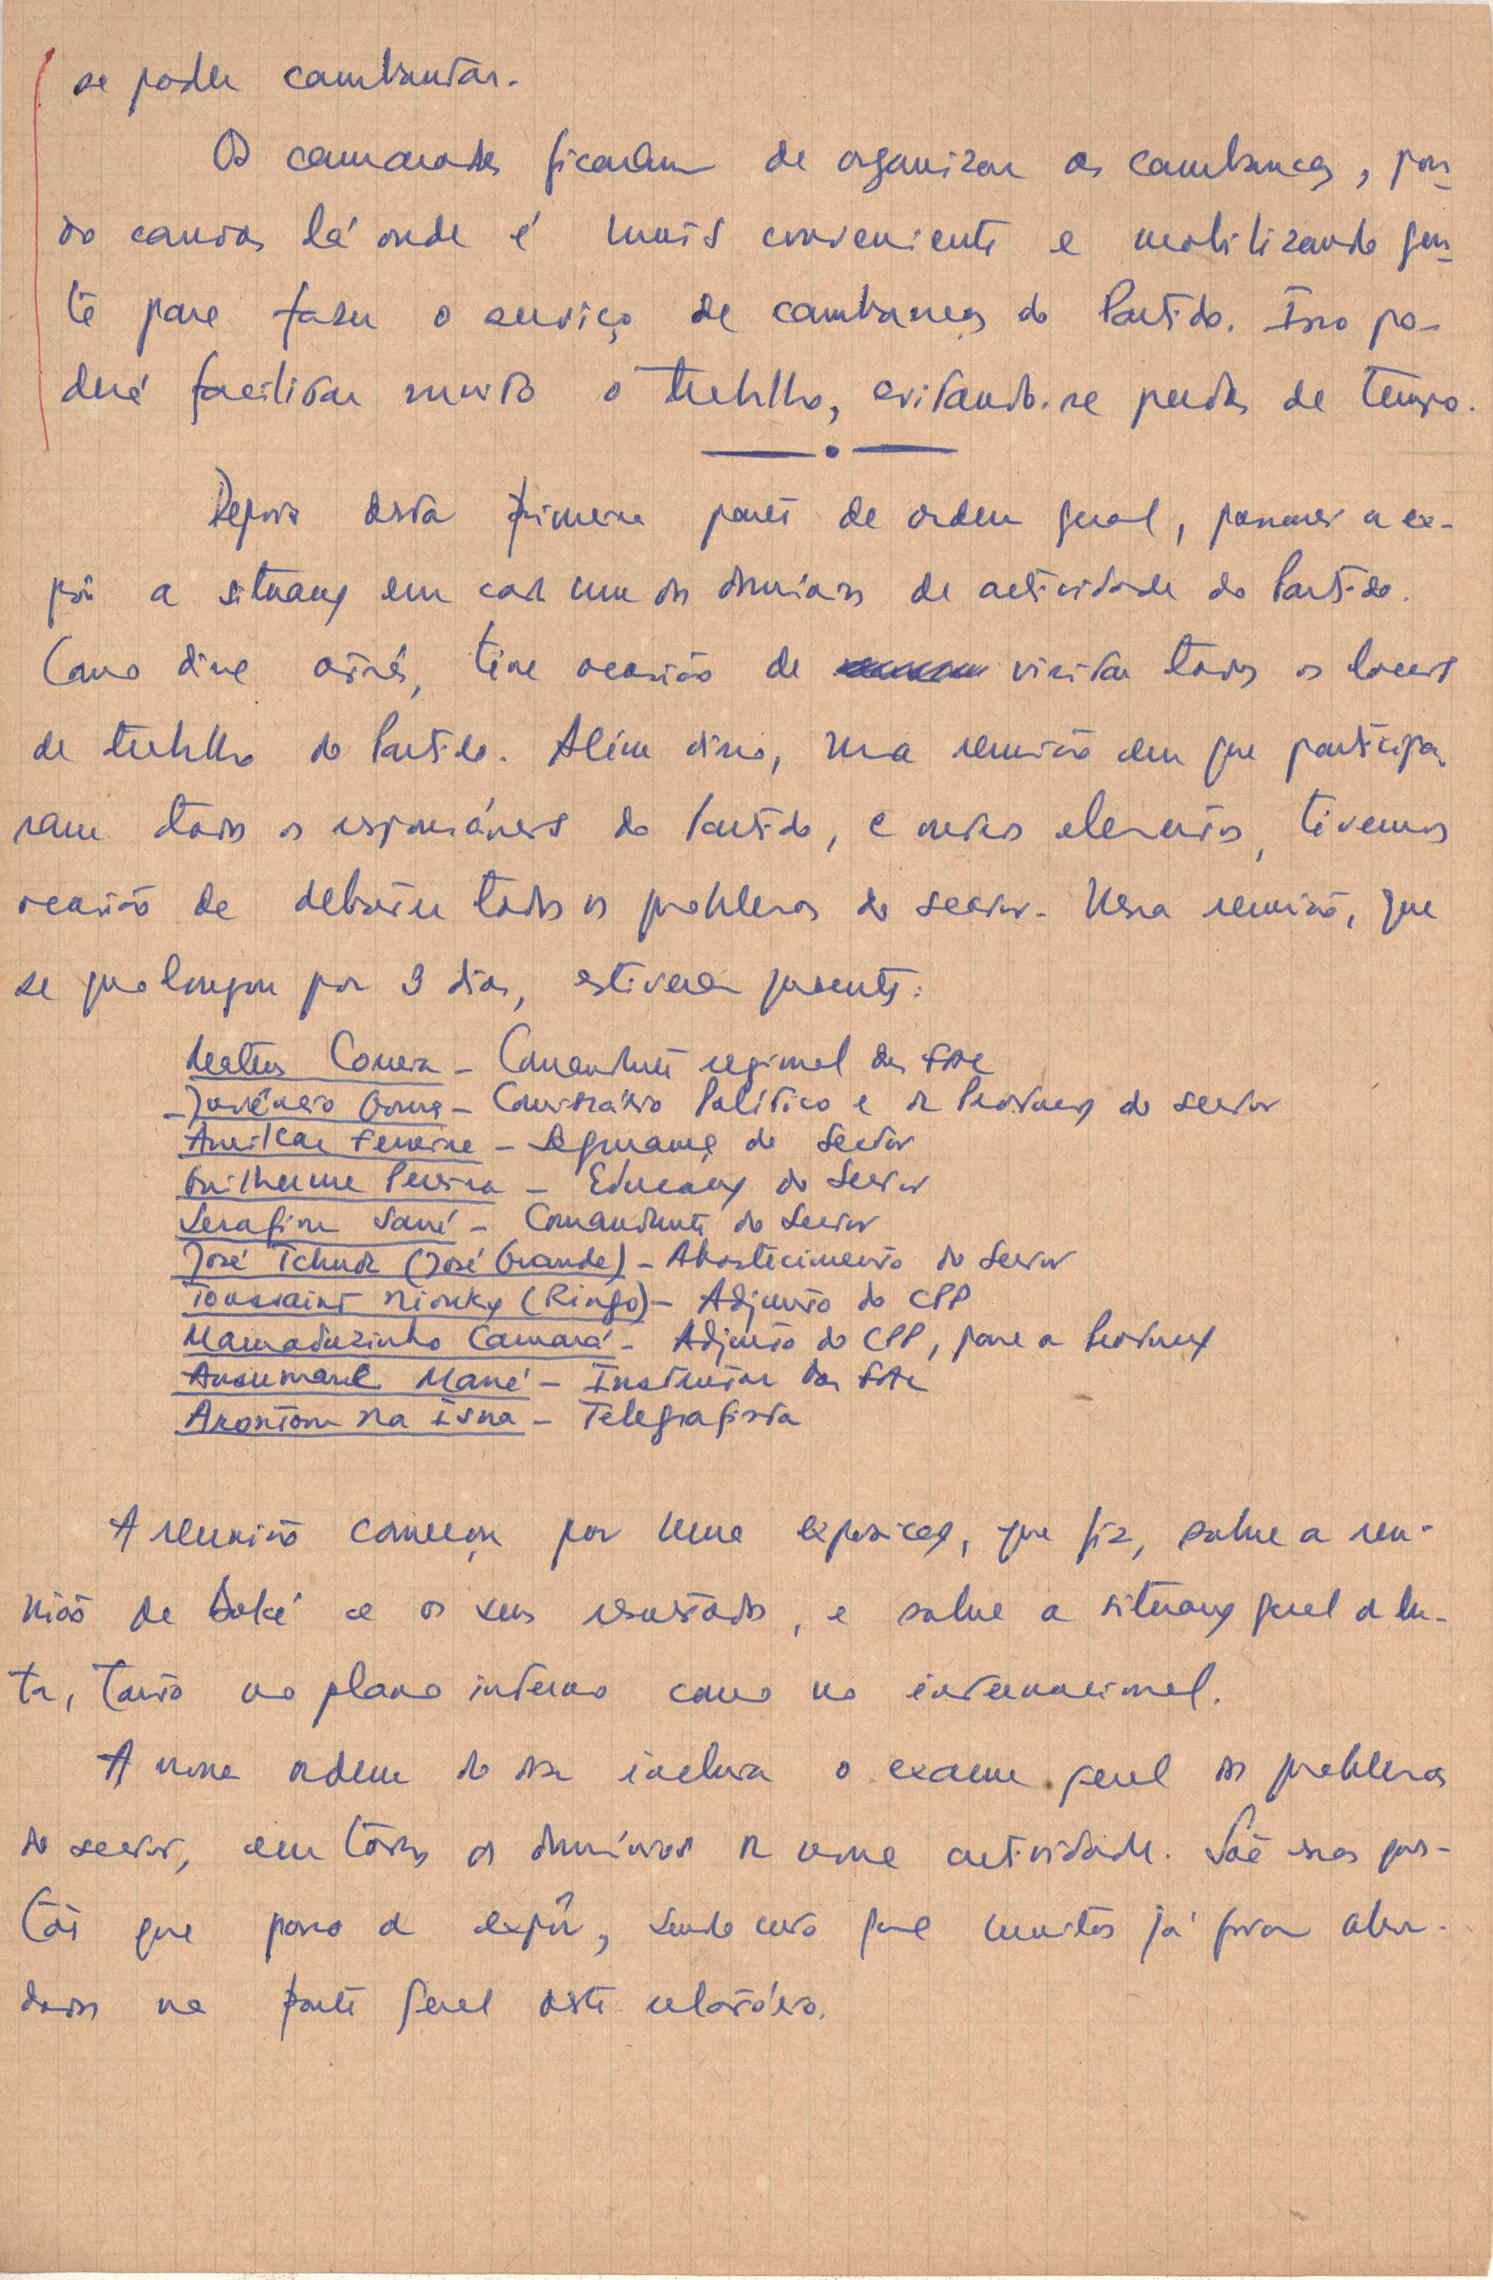 se poder cambantar.
Os camaradas ficaram de organizar as cambanças, pon-
do canoas lá onde é mais conveniente e mobilizando gen-
te para fazer o serviço de cambança do Partido. Isso po-
derá facilitar muito o trabalho, evitando-se perdas de tempo.
Depois desta primeira parte de ordem geral, passarei a ex-
pôr a situação em cada um dos domínios de actividade do Partido.
Como disse atrás, tive ocasião de visitar todos os locais
de trabalho do Partido. Além disso, numa reunião em que participa-
ram todos os responsáveis do Partido, e outros elementos, tivemos
ocasião de debater todos os problemas do sector. Nessa reunião, que
se prolongou por 3 dias, estiveram presentes:
Mateus Correia - Comandante regional das FAL
- Juvêncio Gomes - Comissário Político e da Produção do sector
Amilcar Ferreira - Segurança do Sector
Guilherme Pereira - Educação do Sector
Serafim Sané - Comandante do Sector
José Tchuda (José Grande) - Abastecimento do Sector
Toussaint Niouky (Ringo) - Adjunto do CPP
Mamaduzinho Camará - Adjunto do CPP, para a Produção
Ansumané Mané - Instrutor das FAL
Na Isna - Telegrafista
A reunião começou por uma exposição, que fiz, sobre a reu-
nião de Boké e os seus resultados, e sobre a situação geral da lu-
ta, tanto no plano interno como no internacional.
A nossa ordem do dia incluia o exame geral dos problemas
do sector, em todos os domínios da nossa actividade. São essas ques-
tões que passo a expôr, sendo certo que muitas já foram abor-
dadas na parte geral deste relatório.